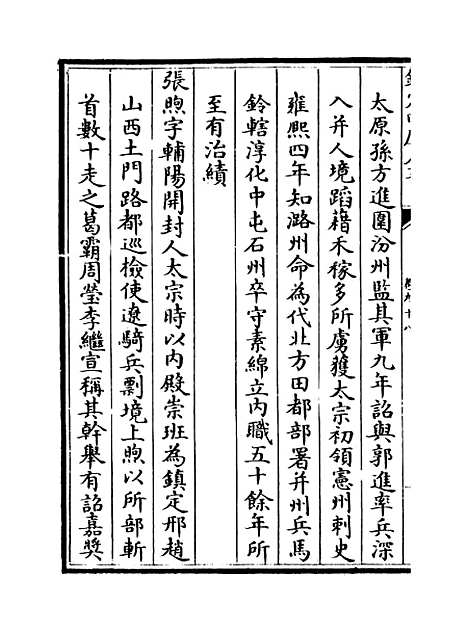 太原孫方進圍汾州監其軍九年詔與郭進率兵深
入并人境蹈藉禾稼多所虜獲太宗初領憲州刺史
雍熙四年知潞州命為代北方田都部署并州兵馬
鈐轄淳化中屯石州卒守素綿立内職五十餘年所
至有治績
張煦字輔陽開封人太宗時以内殿崇班為鎮定邢趙
山西土門路都巡檢使遼騎兵剽境上煦以所部斬
首數十走之葛霸周瑩李繼宣稱其幹舉有詔嘉奬